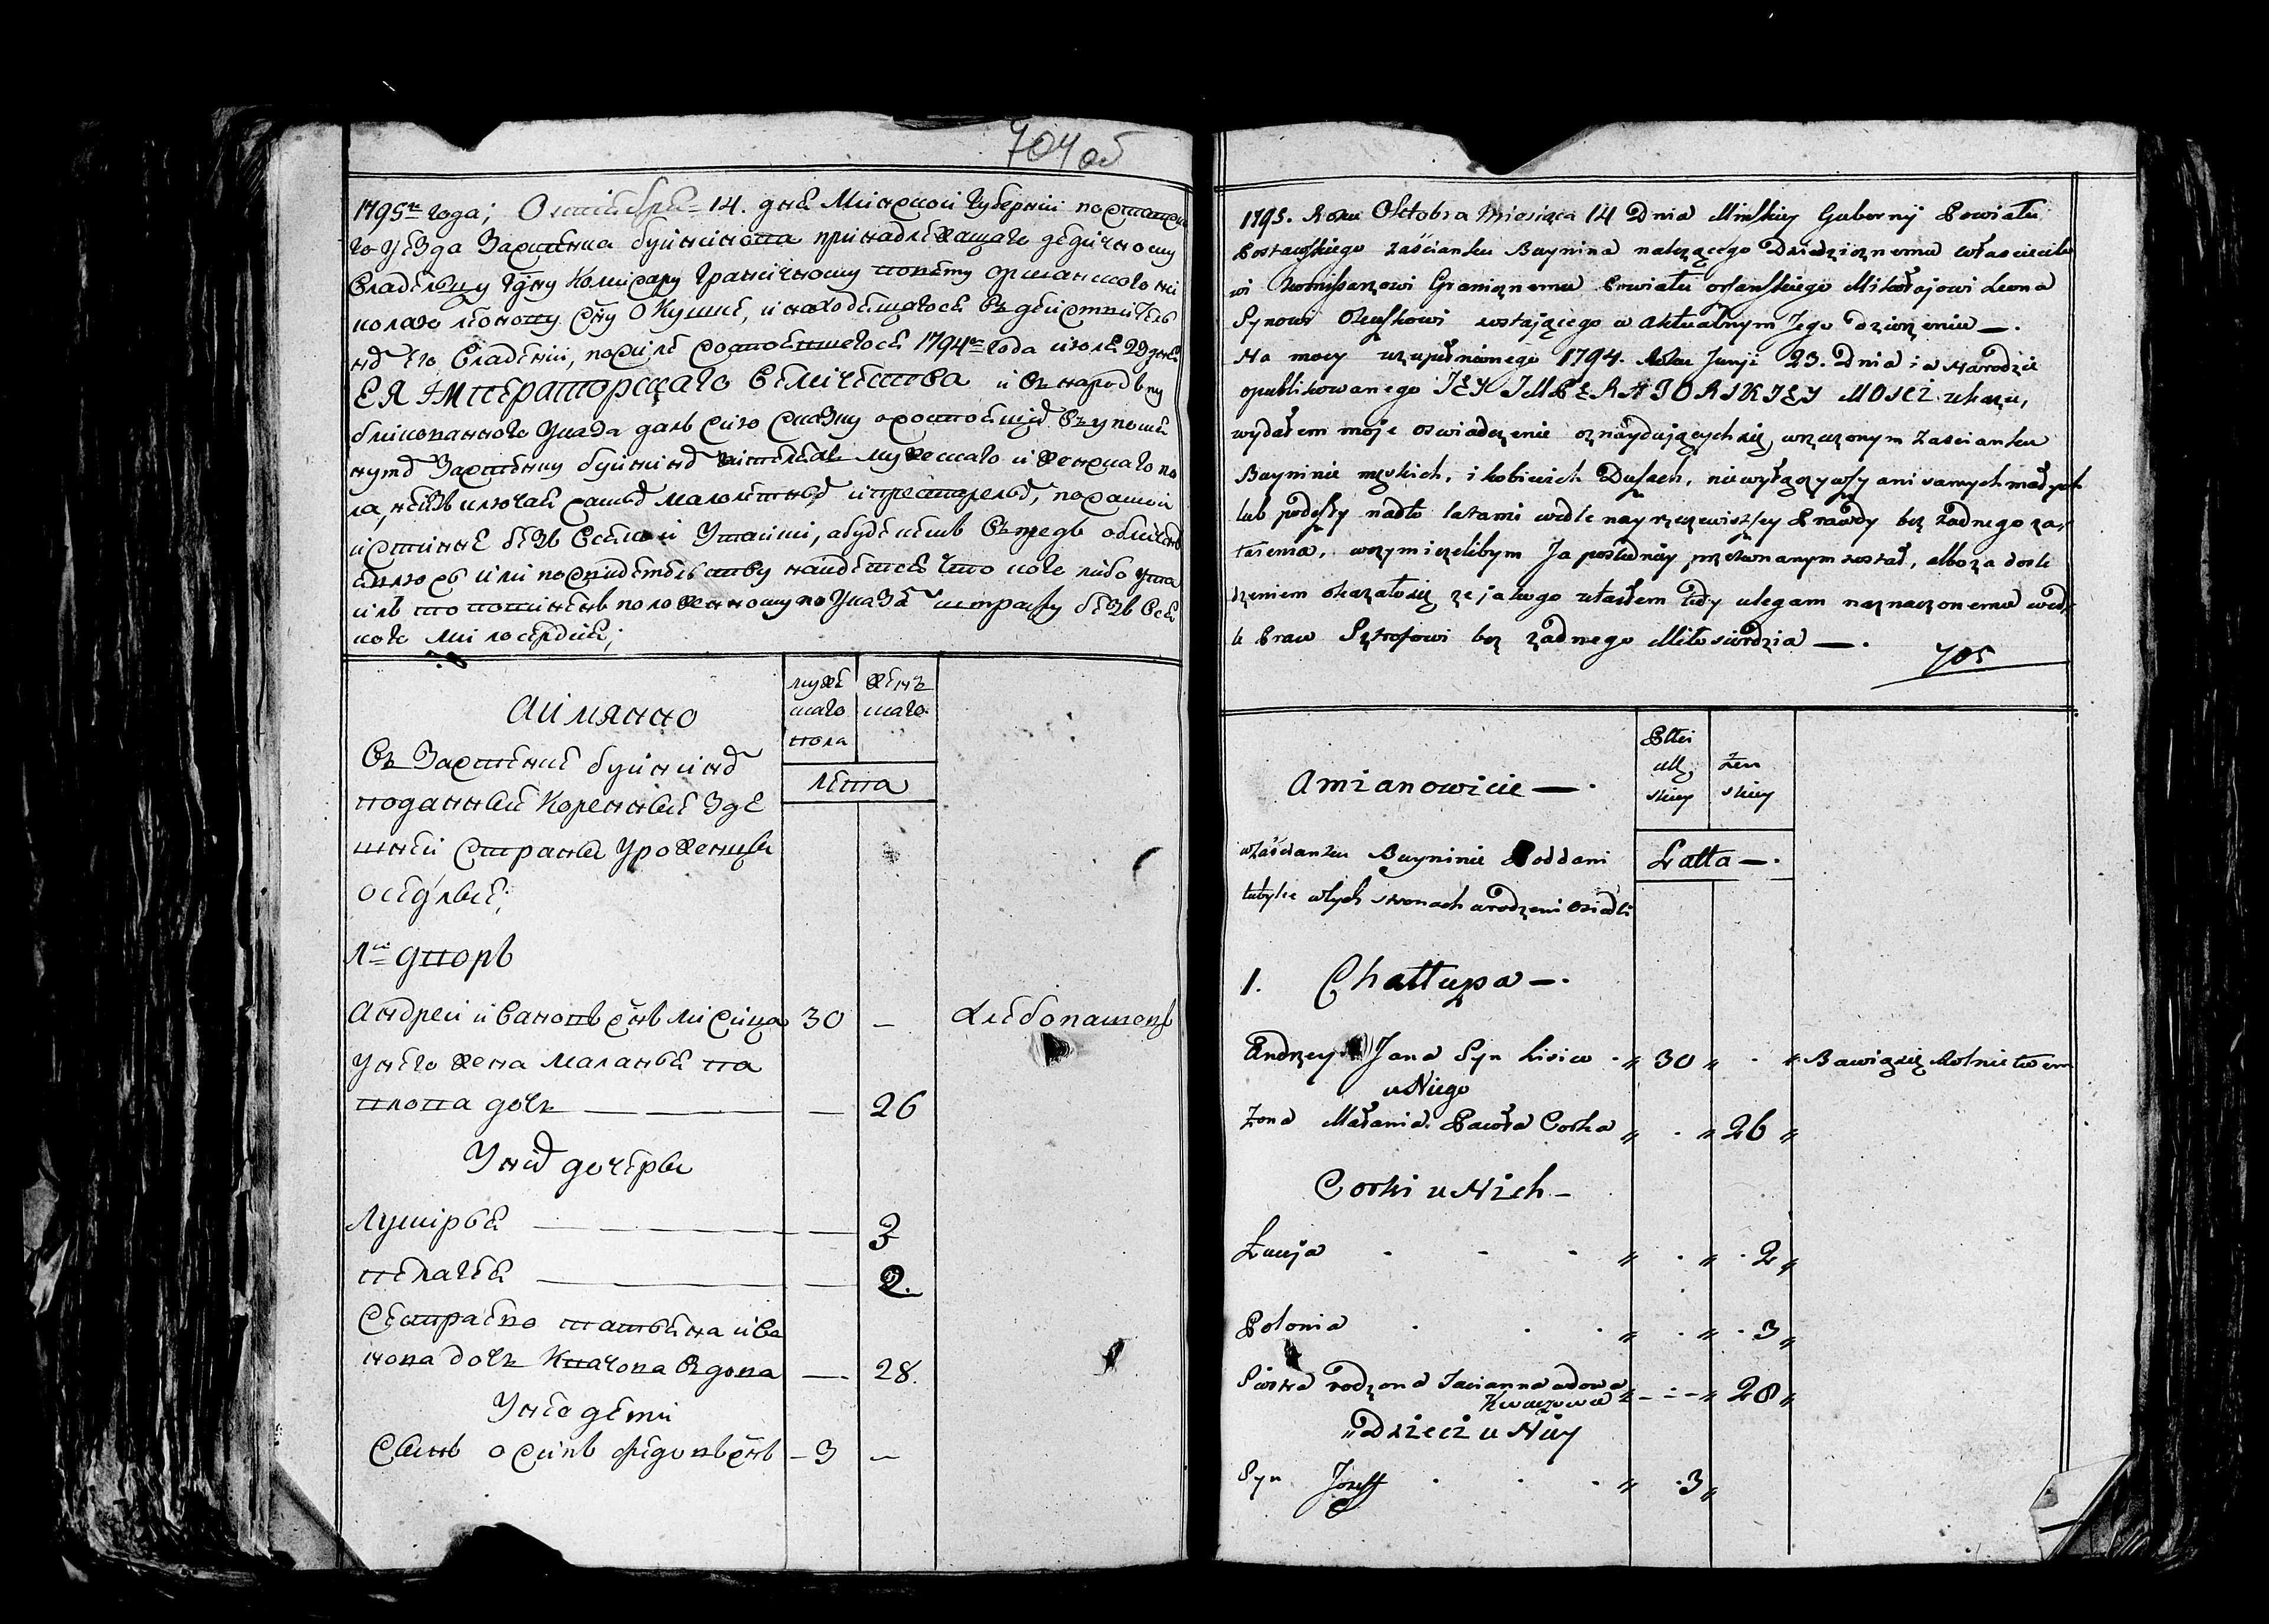 704 об
1795го года; Октября 14. дня Минской Губернии поставска
го уезда Застенка буйнинова принадлежащаго дедичному
Владельцу Гдну Комисару Граничному повету оршанского ни
колаю леонову сну Окушке, и находещегосе въ действитель
ном его владении, посиле состоевшегосе 1794го года июля 23 дня
ЕЯ ІМператорскаго Величества и въ народ опу
бликованного Указа далъ сию сказку о состоящих въ упомя
нутом Застенку буйнине мужескаго и женскаго по
ла, неизключая самых малолетных и престарелых, по самой
истинне безъ всякой Утайки, а буде кемъ въпредь обличенъ
явлюсь или посвидетельству найдетсе что кого либо ута
илъ то повиненъ положенному по Указе штрафу безъ все
кого милосердия;
Аимянно
муже
скаго
пола
женъ
скаго
лета
Въ Застенке буйнине
поданные Коренные Зде
шней Страны Уроженцы
оседлые;
1й дворъ
Андрей ивановъ снъ лисица 30 — Хлебопашецъ
Унего жена маланья па
влова дочь — — 26
Уних дочеры
Лукирья — — 3
пелагея — — 2.
Сестра его татьяна ива
нова дочь Квачова вдова — 28.
Унее дети
Сынъ осипъ федоровъ снъ — 3 —
1795. Roku Oktobra Miesiąca 14 Dnia Minskiey Gubernij Powiatu
Postawskiego zaścianku Buynina nalezącego Dziedzicznemu włascicielo
wi Komissarzowi Granicznemu Powiatu orszanskiego Mikołajowi Leona
Synowi Okuszkowi zostającego w Aktualnym Jego dzierzeniu —.
Na mocy uzupełnionego 1794. Roku Junji 23. Dnia i w Narodzie
opublikowanego JEY IMPERATORSKIEY MOSCI ukazu,
wydałem moje oswiadczenie oznaydujących się wrzeczonym zascianku
Buyninie męskich, i kobiecich Duszach, niewyłączywszy ani samych małych
lub podeszły nadto latami wedle nayrzeczewistszey Prawdy bez żadnego za-
tajenia, wczym jeżelibym Ja poźniey przekonanym został, albo za docho
dzeniem okazało się że jakiego utaiłem tedy ulegam naznaczonemu wed
le Praw Sztrofowi bez żadnego Miłosierdzia —.
705
Amianowicie —.
Płci
Mę
skiey
Żen
skiey
Latta —.
w zaścianku Buyninie Poddani
tubylce w tych stronach urodzeni osiedli
1. Chattupa —.
Andrzey Jana Syn Lisica „ 30 „ . „ Bawiąsię Rolnictwem
u Niego
Zona Małania Pawła Corka „ . „ 26 „
Corki u Nich —
Łucija „ . „ . 2 „
Polonia „ . „ . 3 „
Siostra rodzona Tacianna wdowa
Kwaczowa „ — „ 28 „
„ Dzieci u Niey
Syn Jozeff „ . 3 „